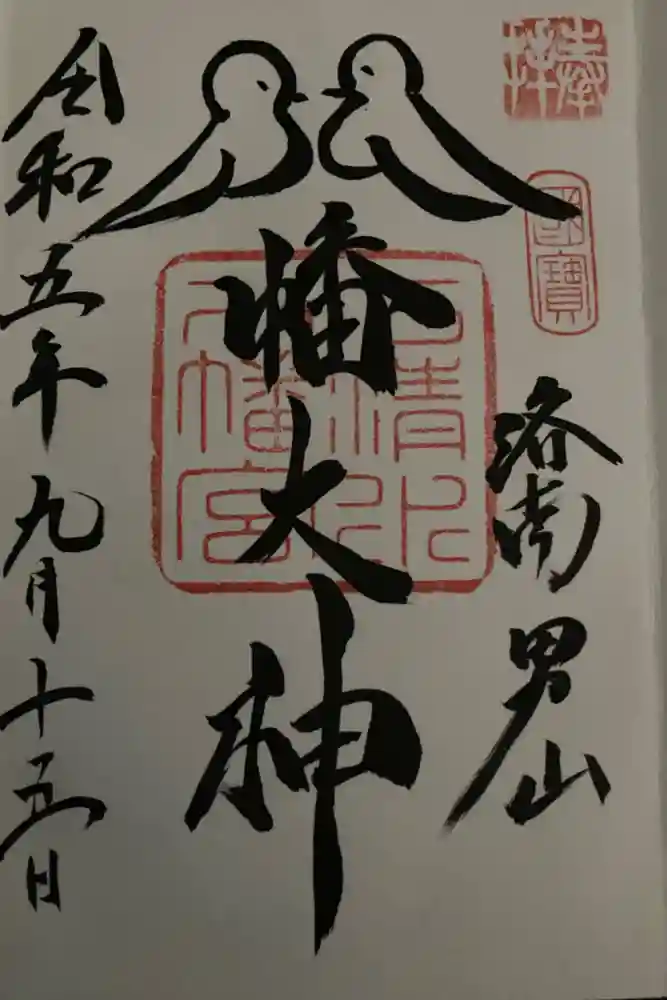 奉拝
國寶
洛南
男山
八幡大神
石清水八幡宮
令和五年九月十五日